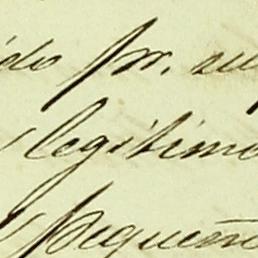 ido pr. su
legitimo
pequeño